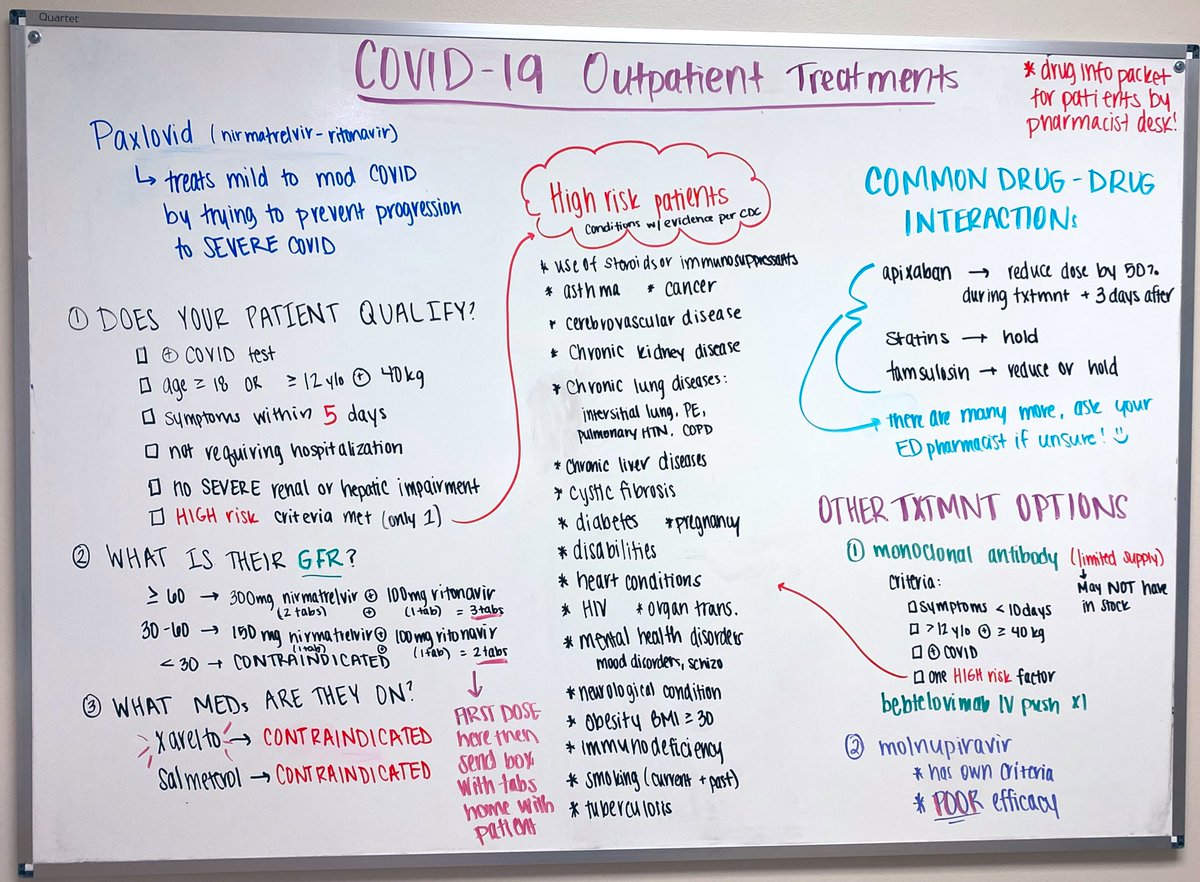 Quartet
COVID-19 Outpatient Treatments
* drug info packet
for patients by
pharmacist desk!
Paxlovid (nirmatrelvir-ritonavir)
↳ treats mild to mod COVID
by trying to prevent progression
to SEVERE COVID
① DOES YOUR PATIENT QUALIFY?
□ ⊕ COVID test
□ age ≥ 18 OR ≥ 12 y/o ⊕ 40kg
□ symptoms within 5 days
□ not requiring hospitalization
□ no SEVERE renal or hepatic impairment
□ HIGH risk criteria met (only 1)
② WHAT IS THEIR GFR?
≥ 60 → 300mg nirmatrelvir ⊕ 100mg ritonavir
(2 tabs) ⊕ (1 tab) = 3 tabs
30-60 → 150 mg nirmatrelvir ⊕ 100mg ritonavir
(1 tab) ⊕ (1 tab) = 2 tabs
< 30 → CONTRAINDICATED
③ WHAT MEDs ARE THEY ON?
Xarelto → CONTRAINDICATED
Salmeterol → CONTRAINDICATED
↓
FIRST DOSE
here then
send box
with tabs
home with
patient
High risk patients
conditions w/ evidence per CDC
* use of steroids or immunosuppressants
* asthma * cancer
* cerebrovascular disease
* Chronic kidney disease
* Chronic lung diseases:
intersitial lung, PE,
pulmonary HTN, COPD
* chronic liver diseases
* cystic fibrosis
* diabetes *pregnancy
* disabilities
* heart conditions
* HIV * organ trans.
* mental health disorders
mood disorders, schizo
* neurological condition
* obesity BMI ≥ 30
* immunodeficiency
* smoking (current + past)
* tuberculosis
COMMON DRUG-DRUG
INTERACTIONs
apixaban → reduce dose by 50%
during txtmnt + 3 days after
Statins → hold
tamsulosin → reduce or hold
there are many more, ask your
ED pharmacist if unsure! :)
OTHER TXTMNT OPTIONS
① monoclonal antibody (limited supply)
↓
May NOT have
in stock
Criteria:
□ symptoms < 10 days
□ > 12 y/o ⊕ ≥ 40 kg
□ ⊕ COVID
□ one HIGH risk factor
bebtelovimab IV push x1
② molnupiravir
* has own criteria
* POOR efficacy